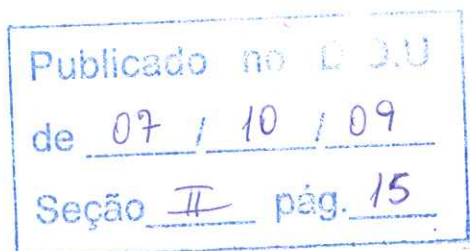 Publicado no D.O.U
de 07 / 10 / 09
Seção II pág. 15